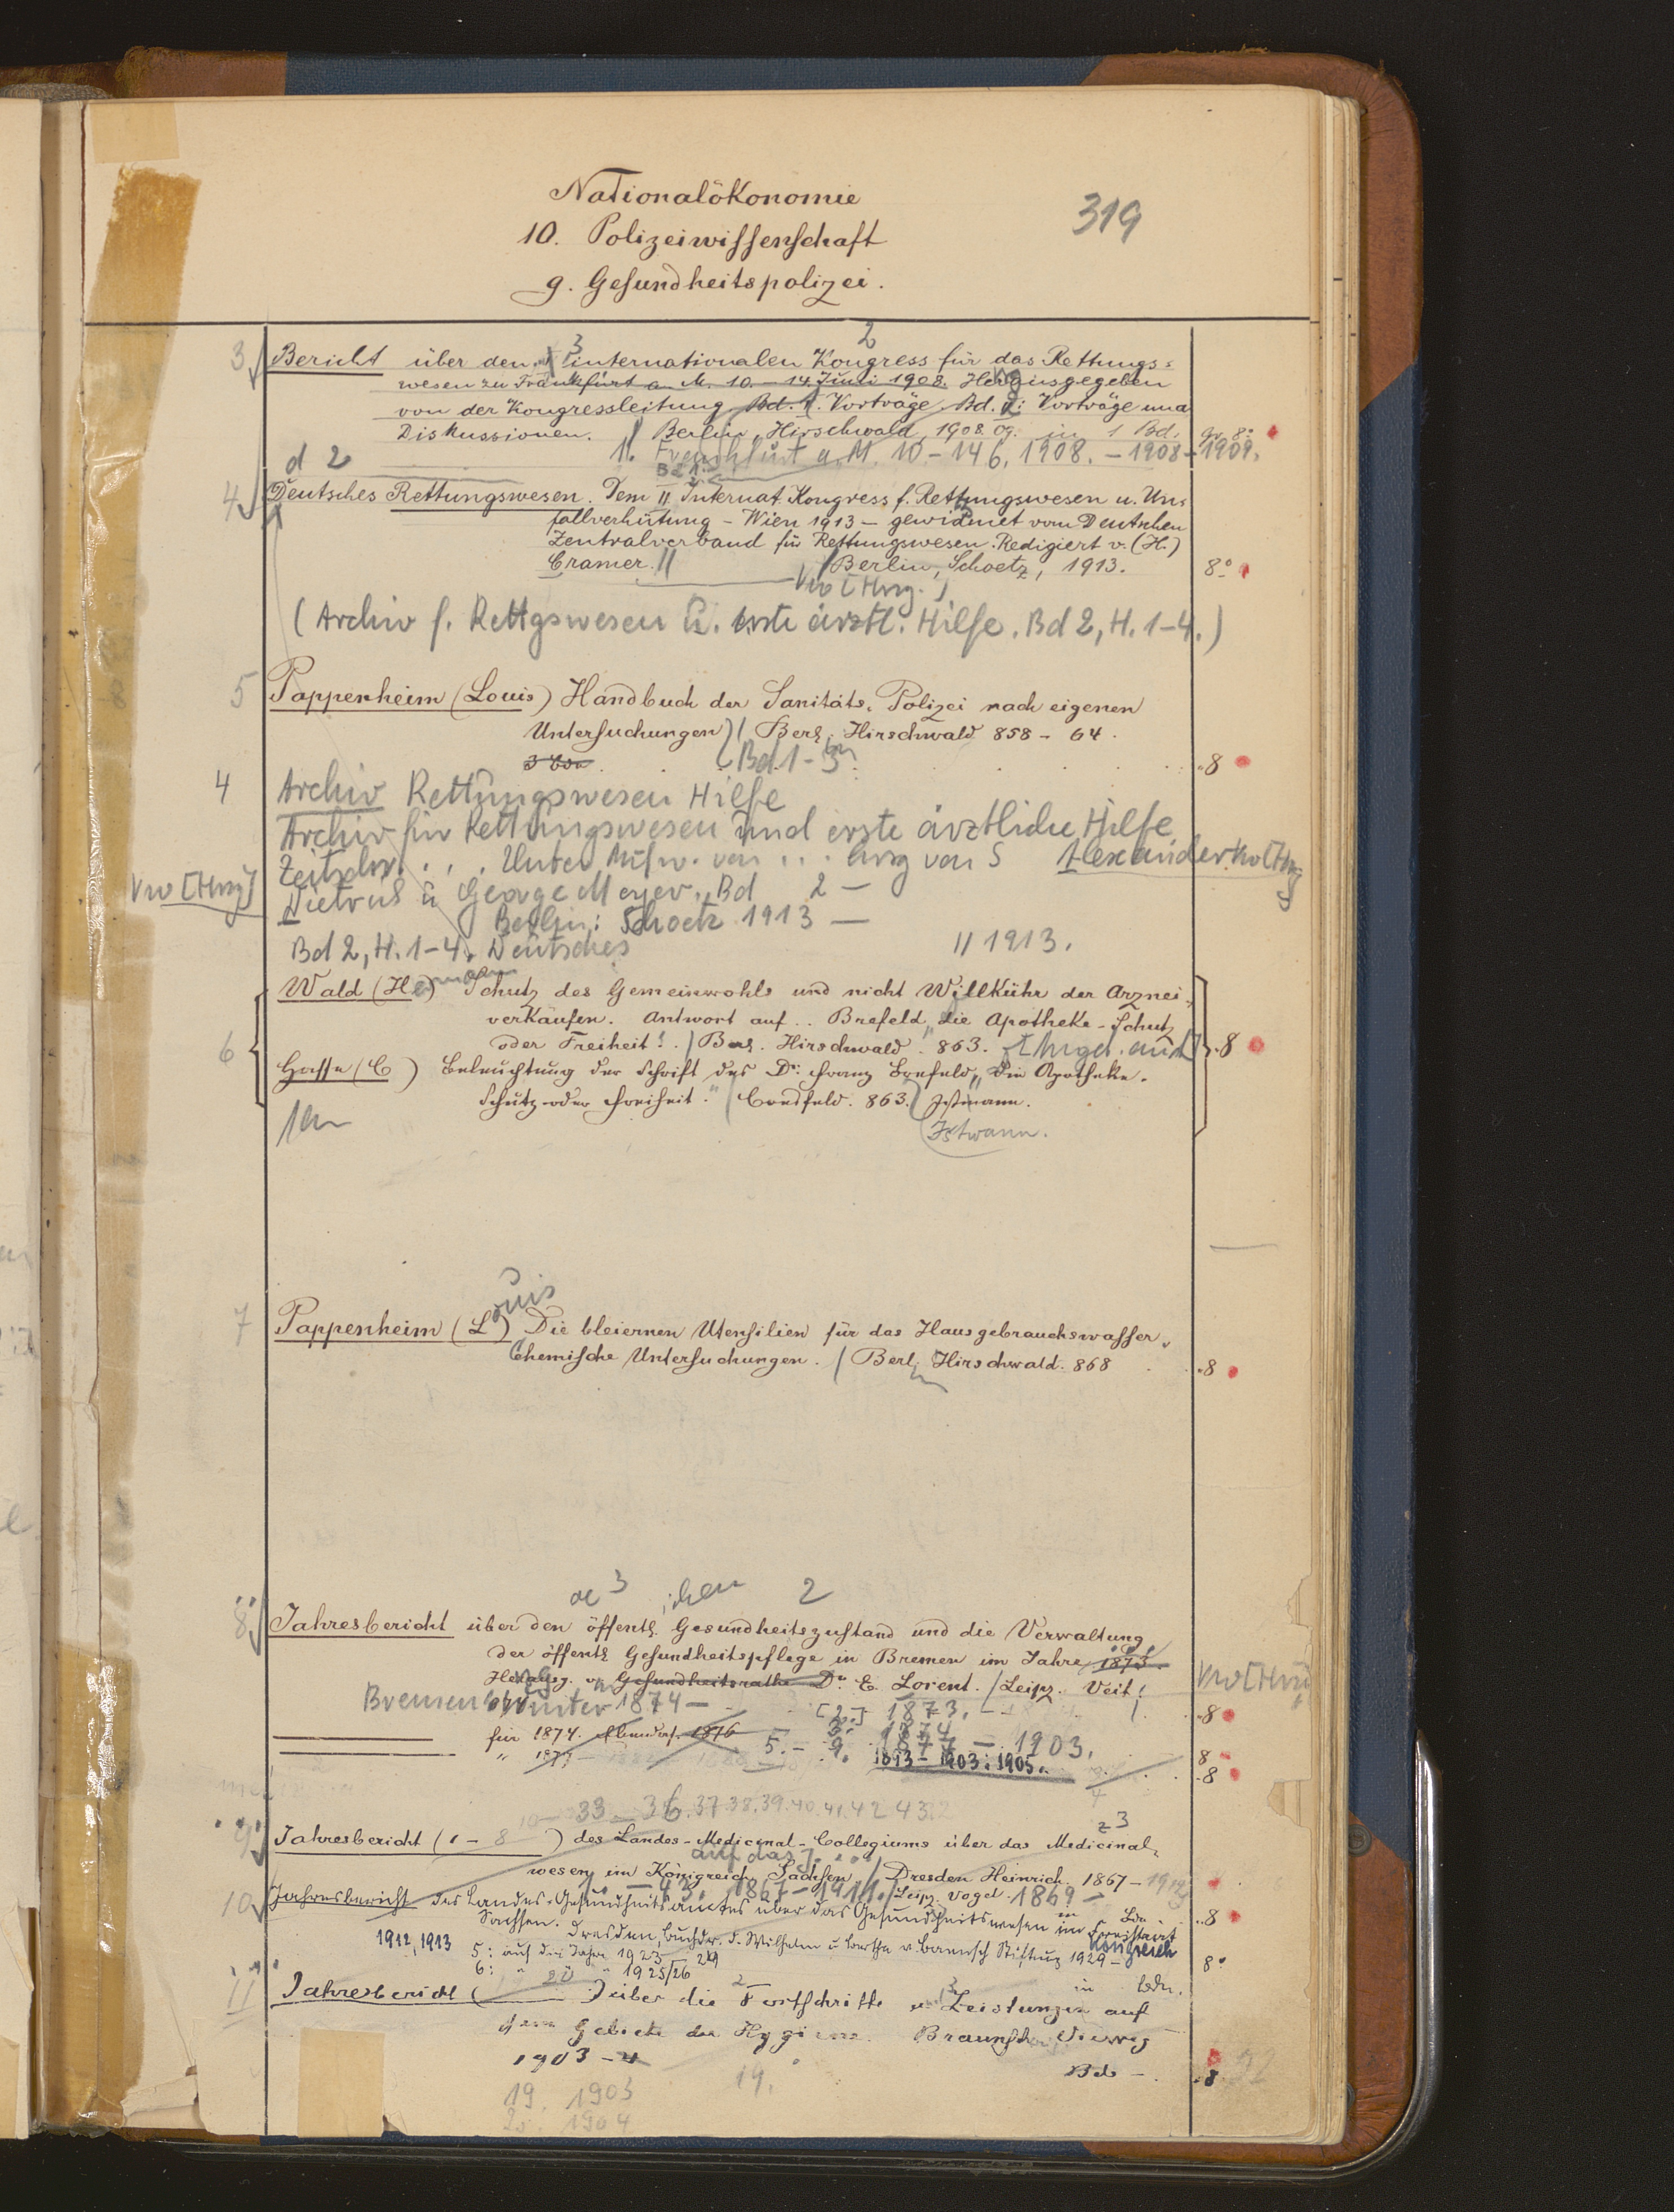 Nationalökonomie
319
10. Polizeiwissenschaft
g. Gesundheitspolizei.
3 2
3 Bericht über den internationalen Kongress für das Rettungs=
wesen zu Frankfurt a. M. 10. – 14 Juni 1908. Herausgegeben
von der Kongressleitung Bd. 1. Vorträge, Bd. 2: Vorträge und
Diskussionen. // Berlin, Hirschwald, 1908. 09. in 1 Bd. gr. 8°
1. Frankfurt a. M. 10 – 14 6. 1908. – 1908 – 1909.
d 2 Bd 1.
4 Deutsches Rettungswesen. Dem II Internat. Kongress f. Rettungswesen u. Un=
fallverhütung – Wien 1913 – gewidmet vom Deutschen
Zentralverband für Rettungswesen. Redigiert v. (H.)
Cramer. // Berlin, Schoetz, 1913. 8°
Vw [Hrsg.]
(Archiv f. Rettgswesen u. erste ärztl. Hilfe. Bd 2, H. 1–4.)
5 Pappenheim (Louis) Handbuch der Sanitäts-Polizei nach eigenen
Untersuchungen / Berl. Hirschwald 858 – 64.
3 Bde. Bd. 1 – 3. 8
4 Archiv Rettungswesen Hilfe
Archiv für Rettungswesen und erste ärztliche Hilfe
Zeitschr. . . . Unter Mitw. von . . . hrsg von S Alexander Vw [Hrsg
Vw [Hrsg] Dietrich u George Meyer. Bd 2 –
Berlin: Schoetz 1913 –
Bd 2, H. 1–4. Deutsches // 1913.
Wald (Hermann) Schutz des Gemeinwohls und nicht Willkühr der Arznei-
verkäufen. Antwort auf .. Brefeld „die Apotheke – Schutz
6 oder Freiheit!. / Berl. Hirschwald. 863. [Angeb. an] 8
Hasse (C) Beleuchtung der Schrift des Dr. Franz Brefeld „Die Apotheke.
Schutz oder Freiheit." / Coesfeld. 863.
7 Pappenheim (Louis) Die bleiernen Utensilien für das Hausgebrauchswasser.
Chemische Untersuchungen. / Berl. Hirschwald. 868 8
3 ichen 2
8 Jahresbericht über den öffentl. Gesundheitszustand und die Verwaltung
der öffentl. Gesundheitspflege in Bremen im Jahre 1873.
Herausg. v. Gesundheitsrathe Dr. E. Lorent. / Leipz. Veit! Vw [Hrsg]
Bremen: Winter 1874 – [2.] 1873. 8
für 1874. Ebendas. 1876 3. 1874
" 1877 5. – 9. 1877 – 1903. 8
1893 – 1903: 1905. 8
33 – 36. 37. 38. 39. 40. 41. 42 43
z 3
9 Jahresbericht (1 – 8 ) des Landes-Medicinal-Collegiums über das Medicinal-
auf das J.
wesen im Königreich Sachsen / Dresden Heinrich. 1867 –
– 43. 1867 – 1911. / Leipz. Vogel 1869 – 8
10 Jahresbericht des Landes-Gesundheitsamtes über das Gesundheitswesen im Freistaat
Königreich
Sachsen. Dresden, Buchdr. d. Wilhelm u Bertha v. Baensch Stiftung 1929 –
1912, 1913 5: auf die Jahre 1923 – 24 8°
6: " " 1925/26
11 Jahresbericht ( 20 ) über die Fortschritte u. Leistungen auf
dem Gebiete der Hygiene. Braunschw. Vieweg
1903 – Bde – 8
19. 1903 19.
20. 1904